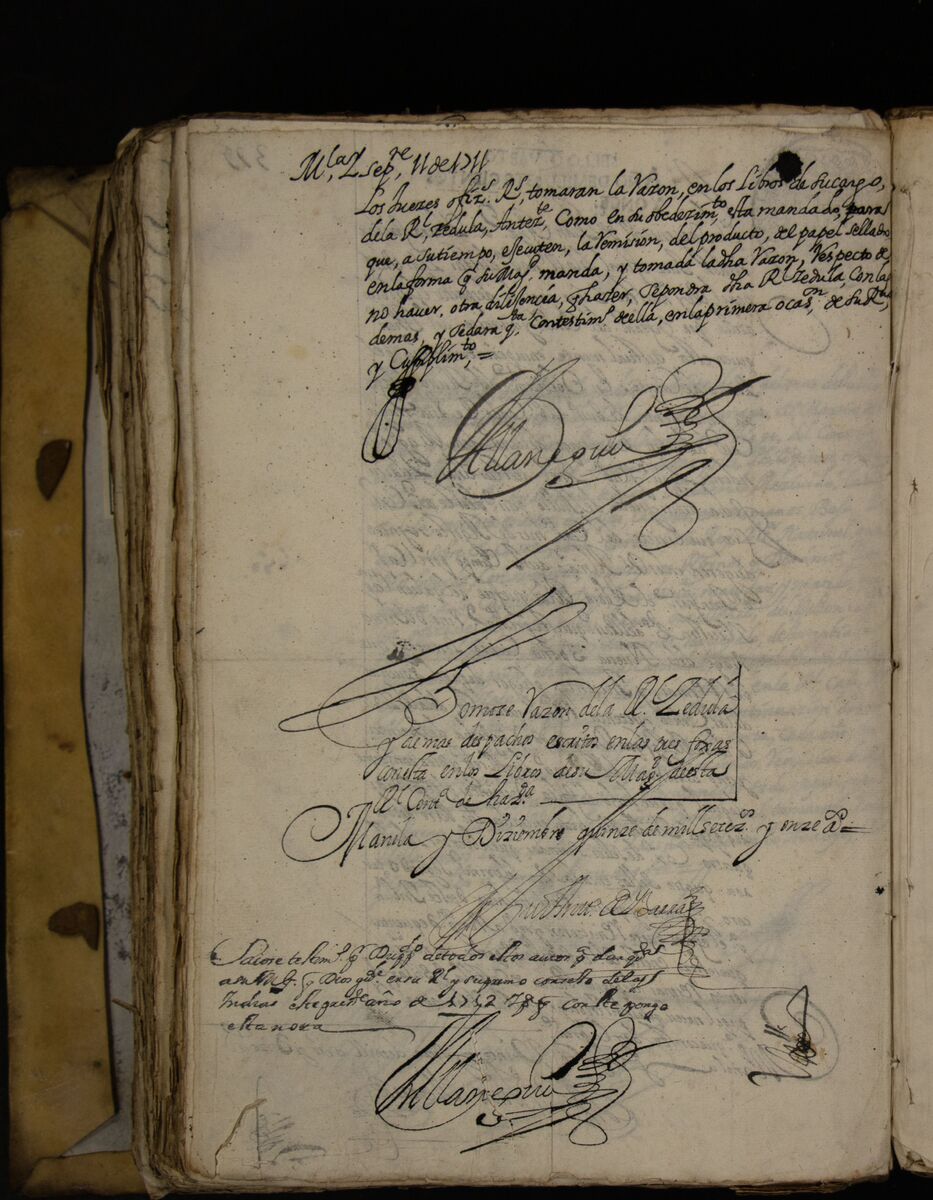 M.la y Sep.re 11 de 1711
Los Juezes ofiz.s R.s tomaran la Razon, en los Libros de su cargo,
de la R.l zedula, Antez.te Como en su obedezim.to esta mandado, para
que, a su tiempo, executen, la Remision, del producto, del papel sellado
en la forma q su Mag.d manda, y tomada la dha Razon, Respecto de
no haver, otra dilixencia, q hazer, se pondra dha R.l zedula, con las
demas, y se dara q.ta con testim.o de ella, en la primera ocas.on de su R.vo
y Cumplim.to =
Tomose Razon de la R.l Zedula
y demas despachos escritos en las tres foxas
con esta en los Libros de su Mag.d de esta
R.l Cont.a de haz.da
Manila y Diziembre quinze de mill setez.os y onze a.s =
Sacose testim.o q Dup.do de todos estos autos q dar q.ta
a su Mg. q Dios g.de en su R.l y supremo consejo de las
Indias este año de 1712 con pongo
esta nota